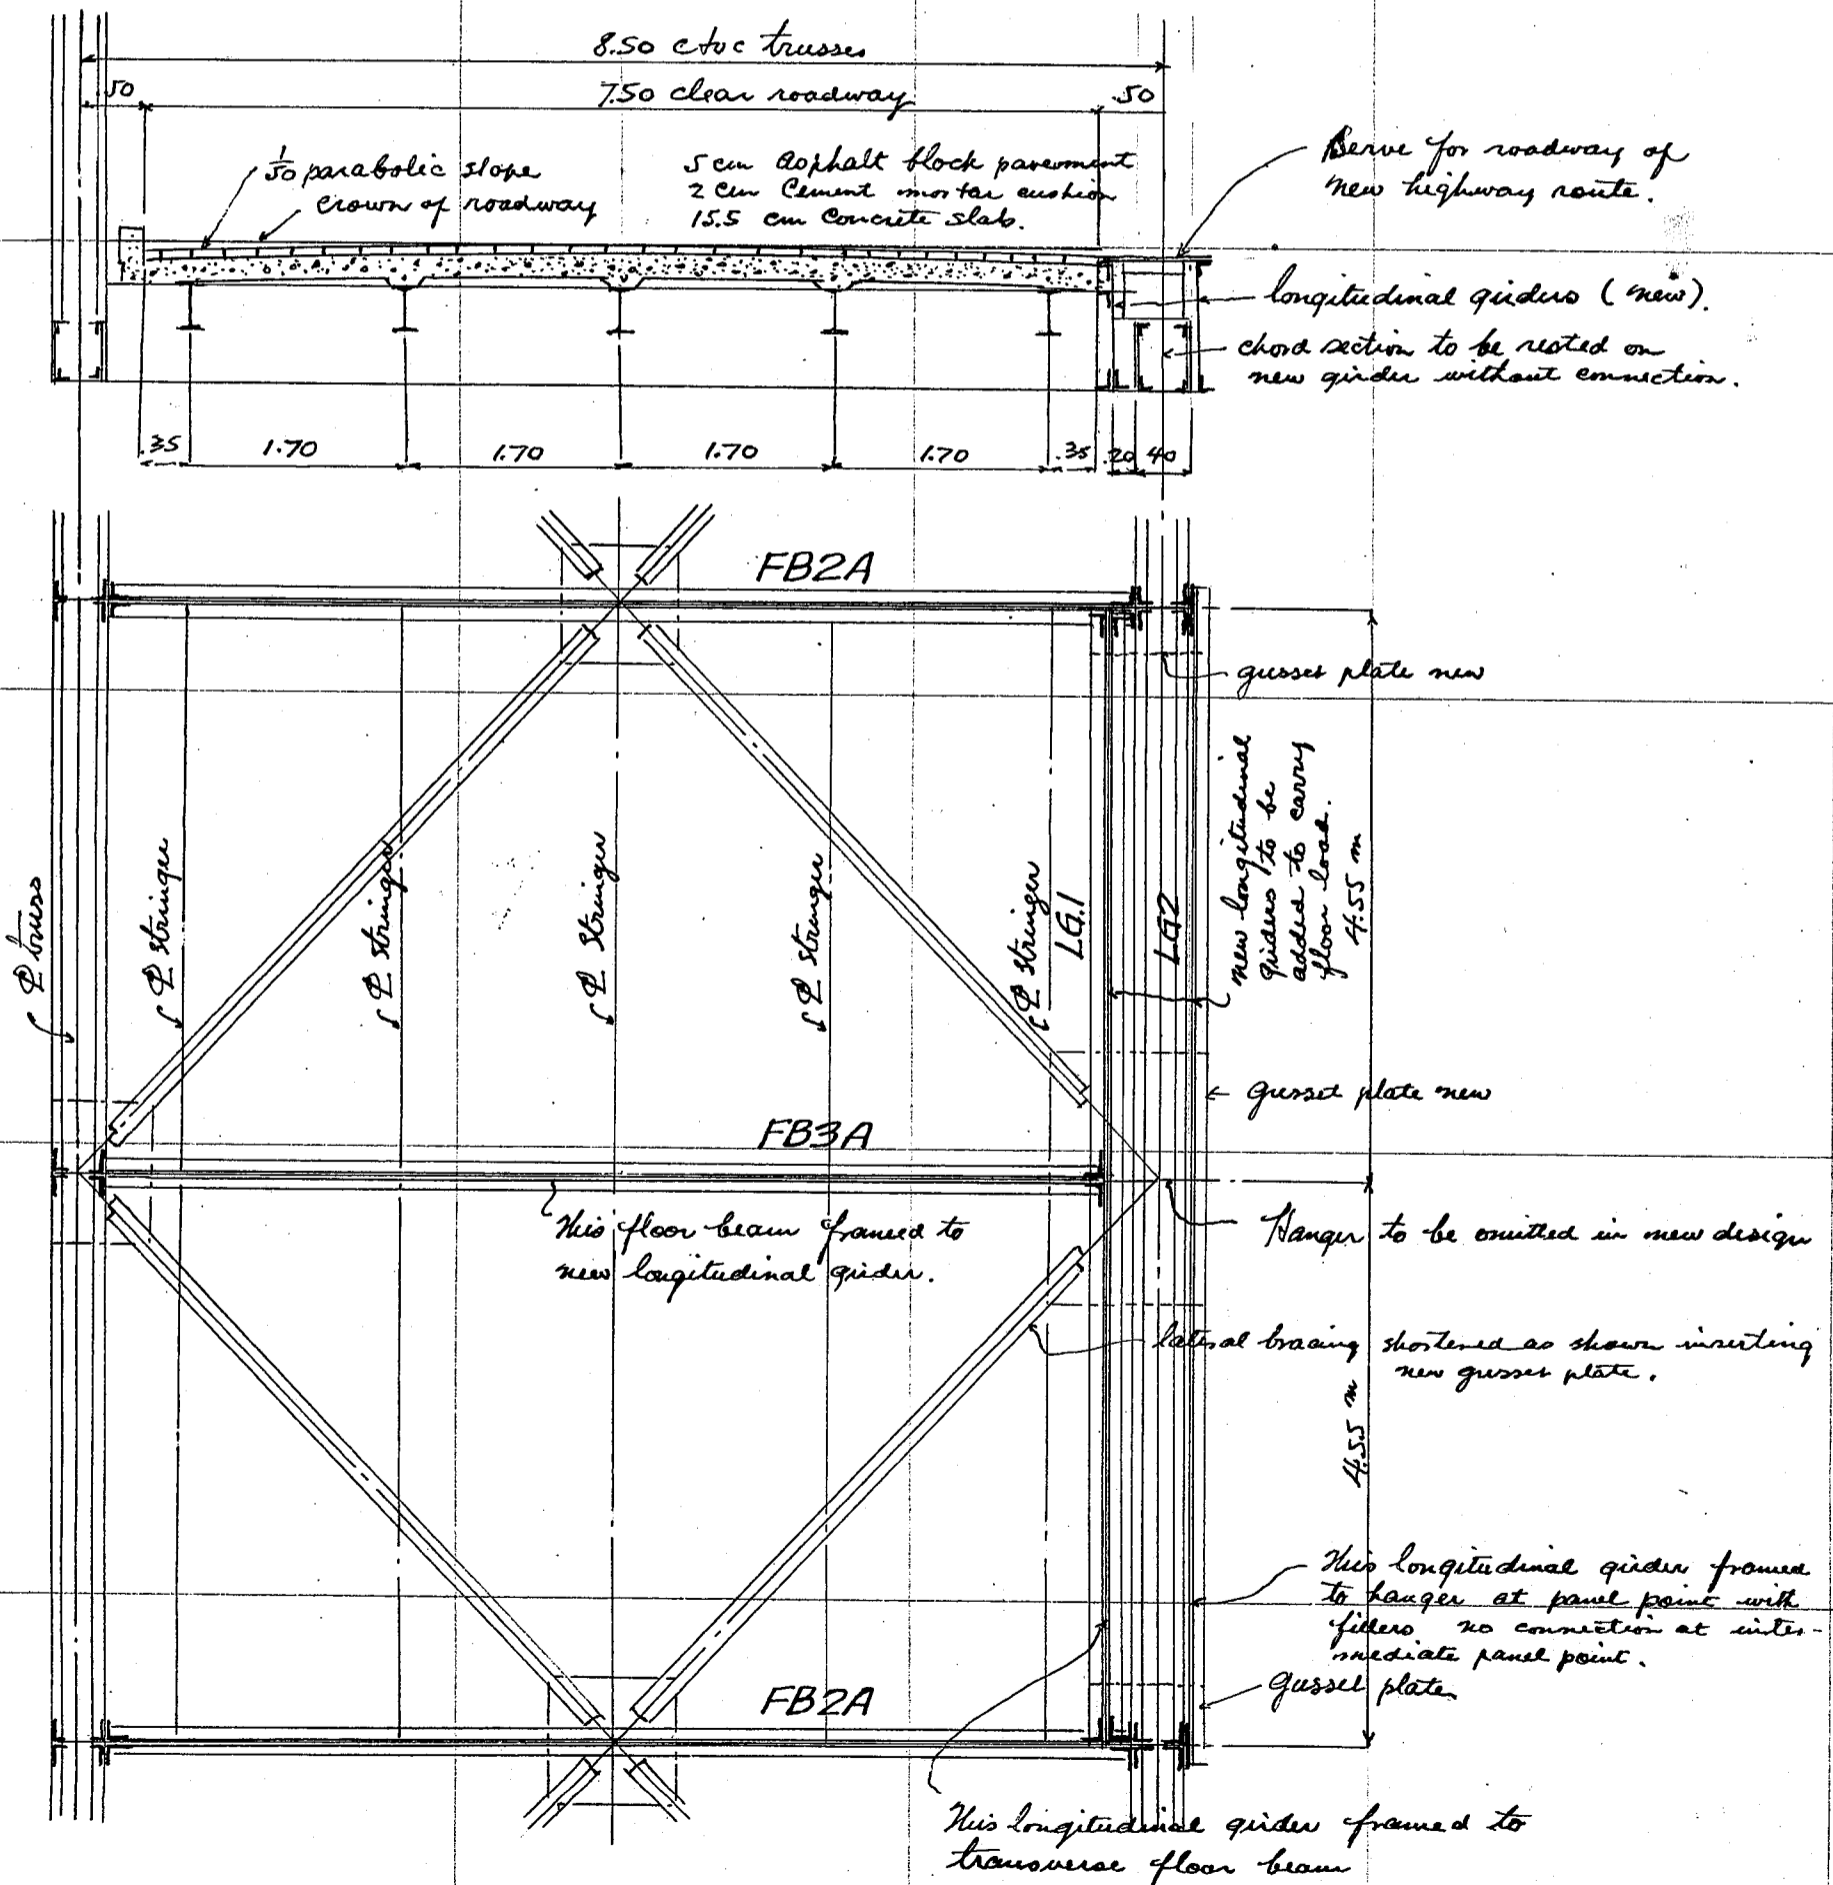 8.50 c to c trusses
.50
7.50 clear roadway
.50
1/50 parabolic slope
crown of roadway
5 cm Asphalt block pavement
2 cm Cement mortar cushion
15.5 cm Concrete slab.
Berve for roadway of
new highway route.
longitudinal girders (new).
chord section to be rested on
new girder without connection.
.35
1.70
1.70
1.70
1.70
.35
.20
40
FB2A
gusset plate new
new longitudinal
girders to be
added to carry
floor load.
4.55 m
℄ truss
℄ stringer
℄ stringer
℄ stringer
℄ stringer
℄ stringer
LG.1
LG2
gusset plate new
FB3A
This floor beam framed to
new longitudinal girder.
Hanger to be omitted in new design
lateral bracing shortened as shown inserting
new gusset plate.
4.55 m
This longitudinal girder framed
to hanger at panel point with
fillers no connection at inter-
mediate panel point.
gusset plates
FB2A
This longitudinal girder framed to
transverse floor beam